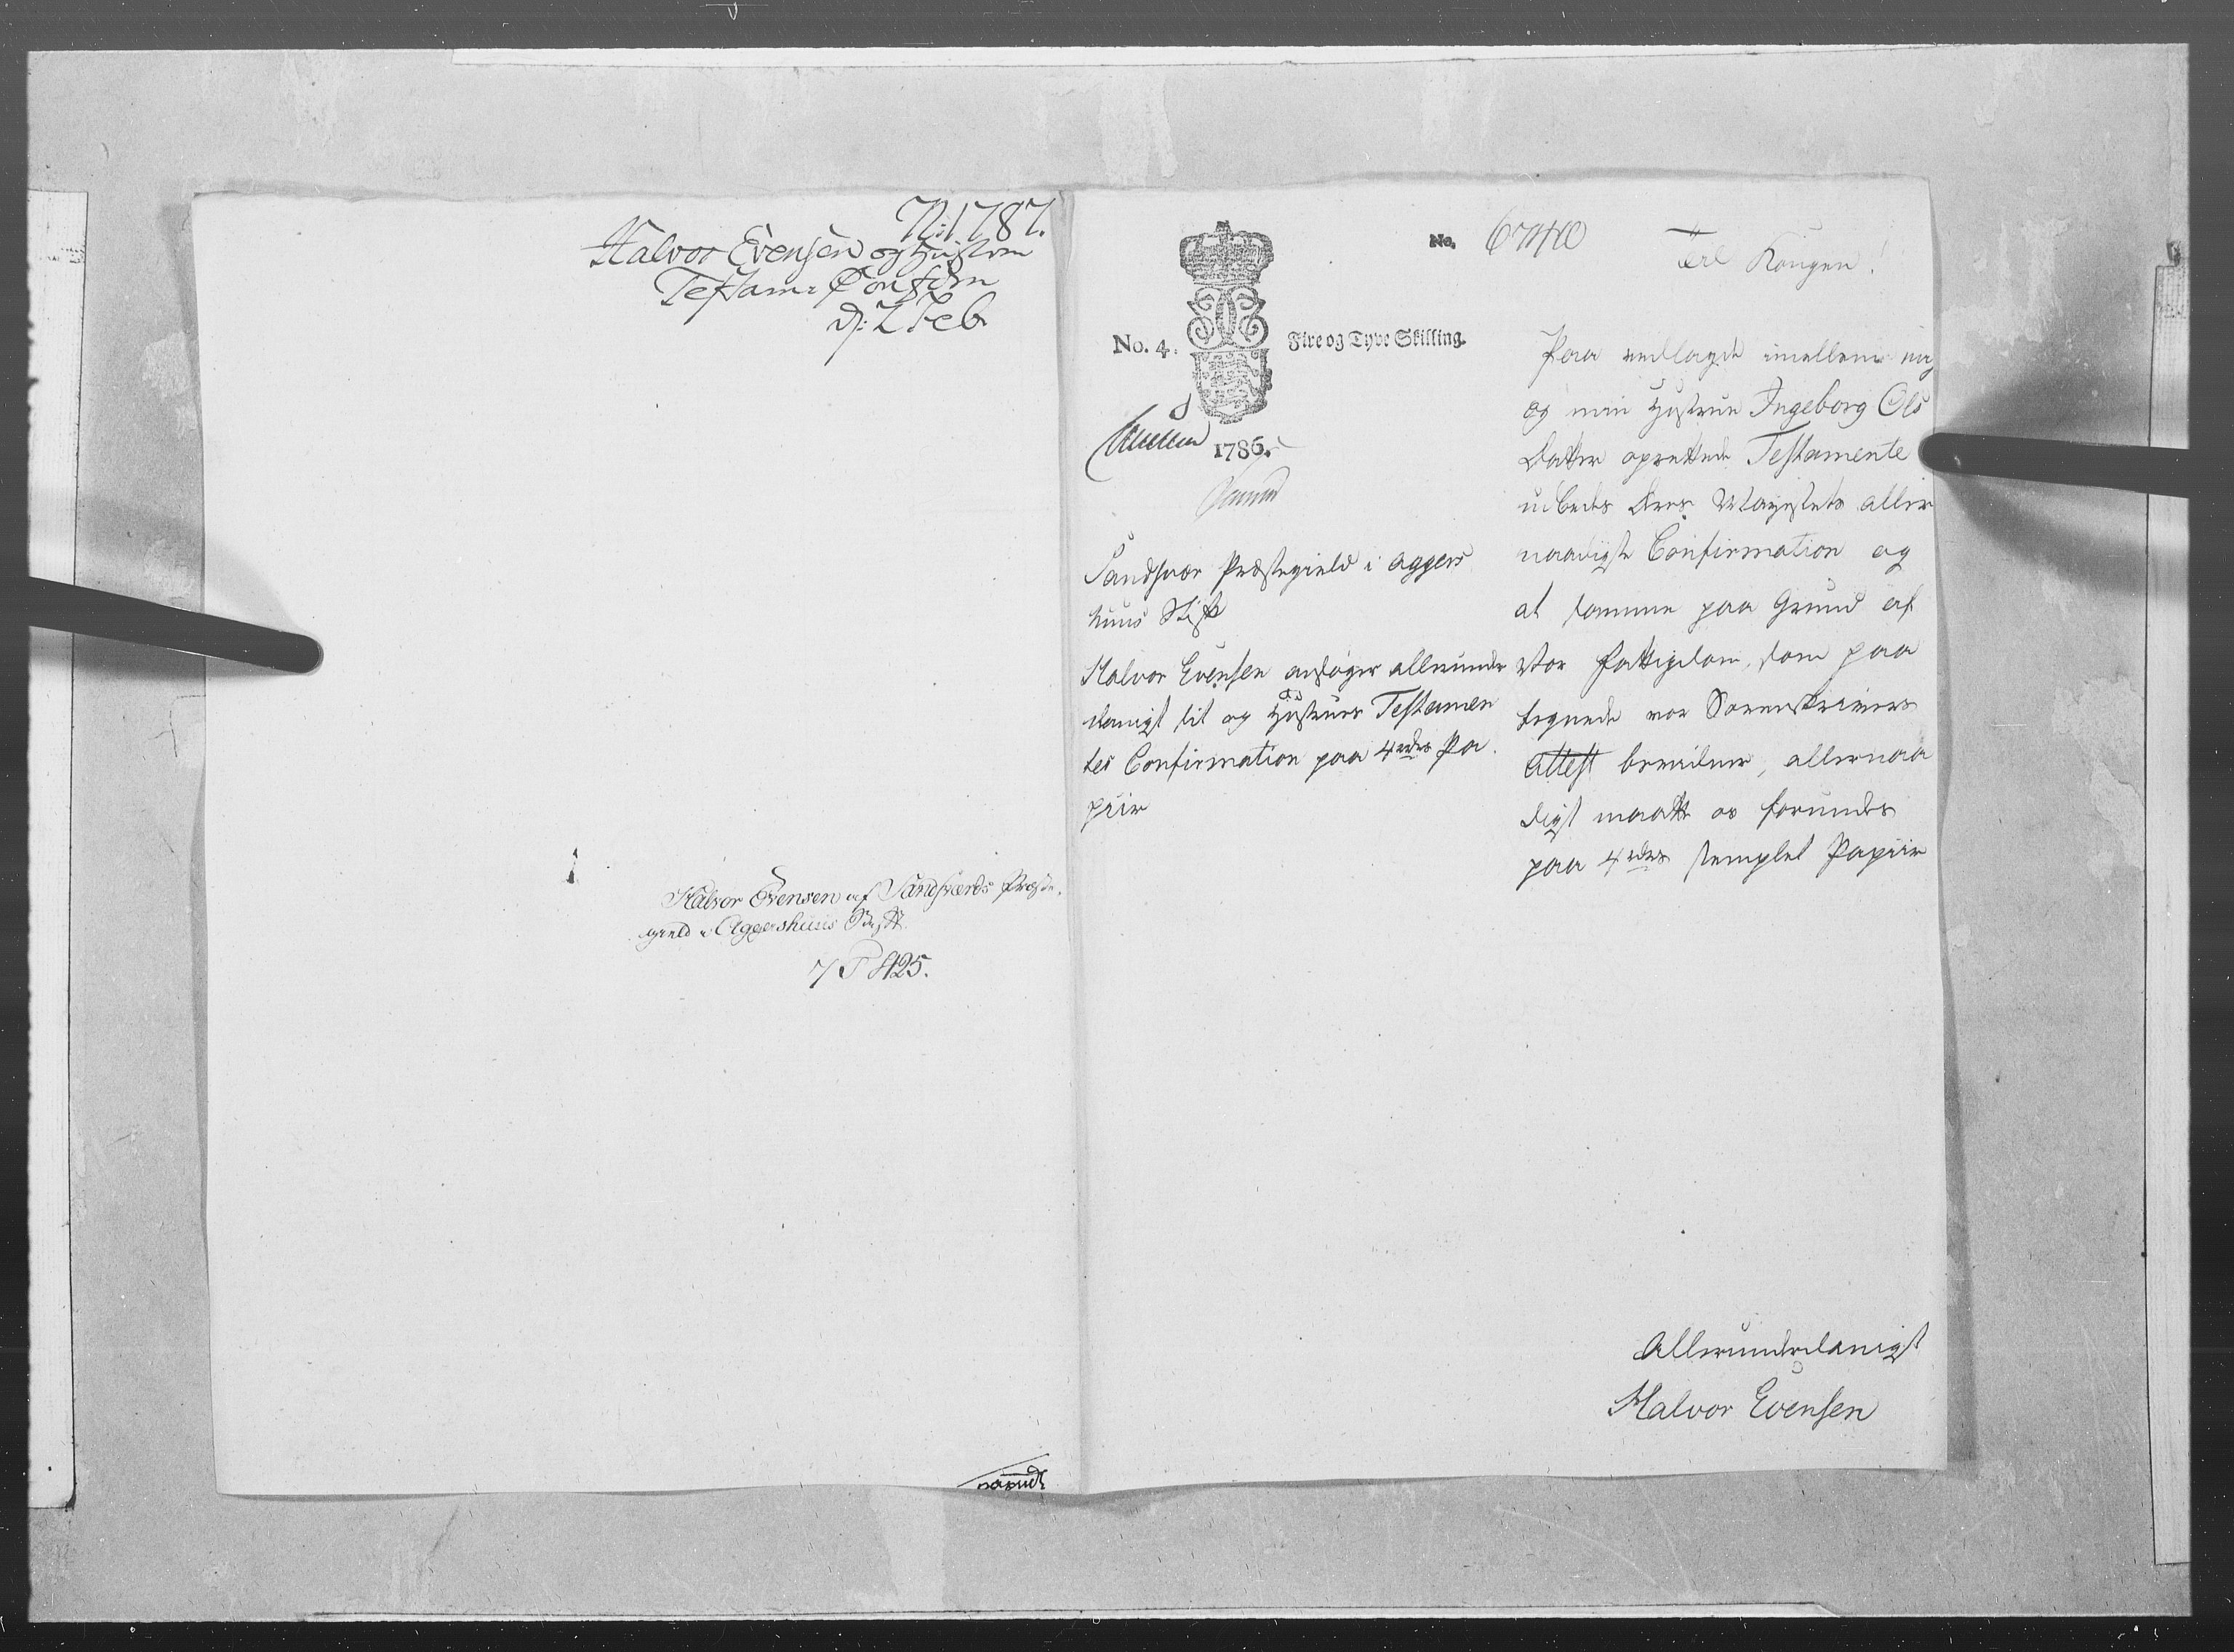 N: 1787.
Halvor Evensen og Hustrue
Testam: Confirm
D: 2 Feb
Halvor Evensen af Sandsværds Præste-
gield i Aggershuus Stift
7 P 425.
No. 6740
Til Kongen!
No. 4. Fire og Tyve Skilling.
1786.
Sandsvær Præstegield i Aggers
huus Stift
Halvor Evensen ansøger allerunder
danigst sit og Hustrues Testamen
tes Confirmation paa 4rdrs Pa
piir
Paa vedlagde imellem mig
og min Hustrue Ingeborg Ols
Datter oprettede Testamente
udbedes Deres Mayestets aller
naadigste Confirmation og
at samme paa Grund af
vor Fattigdom, som paa
tegnede vor Sorenskrivers
Attest bevidner, allernaa
digst maatte os forundes
paa 4rdrs stemplet Papiir
Allerunderdanigst
Halvor Evensen